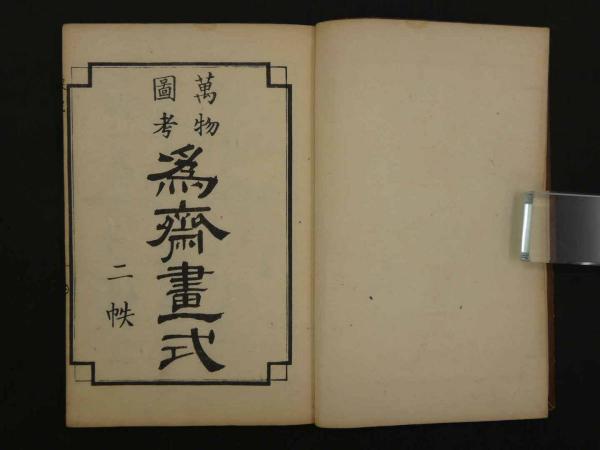 萬物
圖考
爲齋畫式
二帙